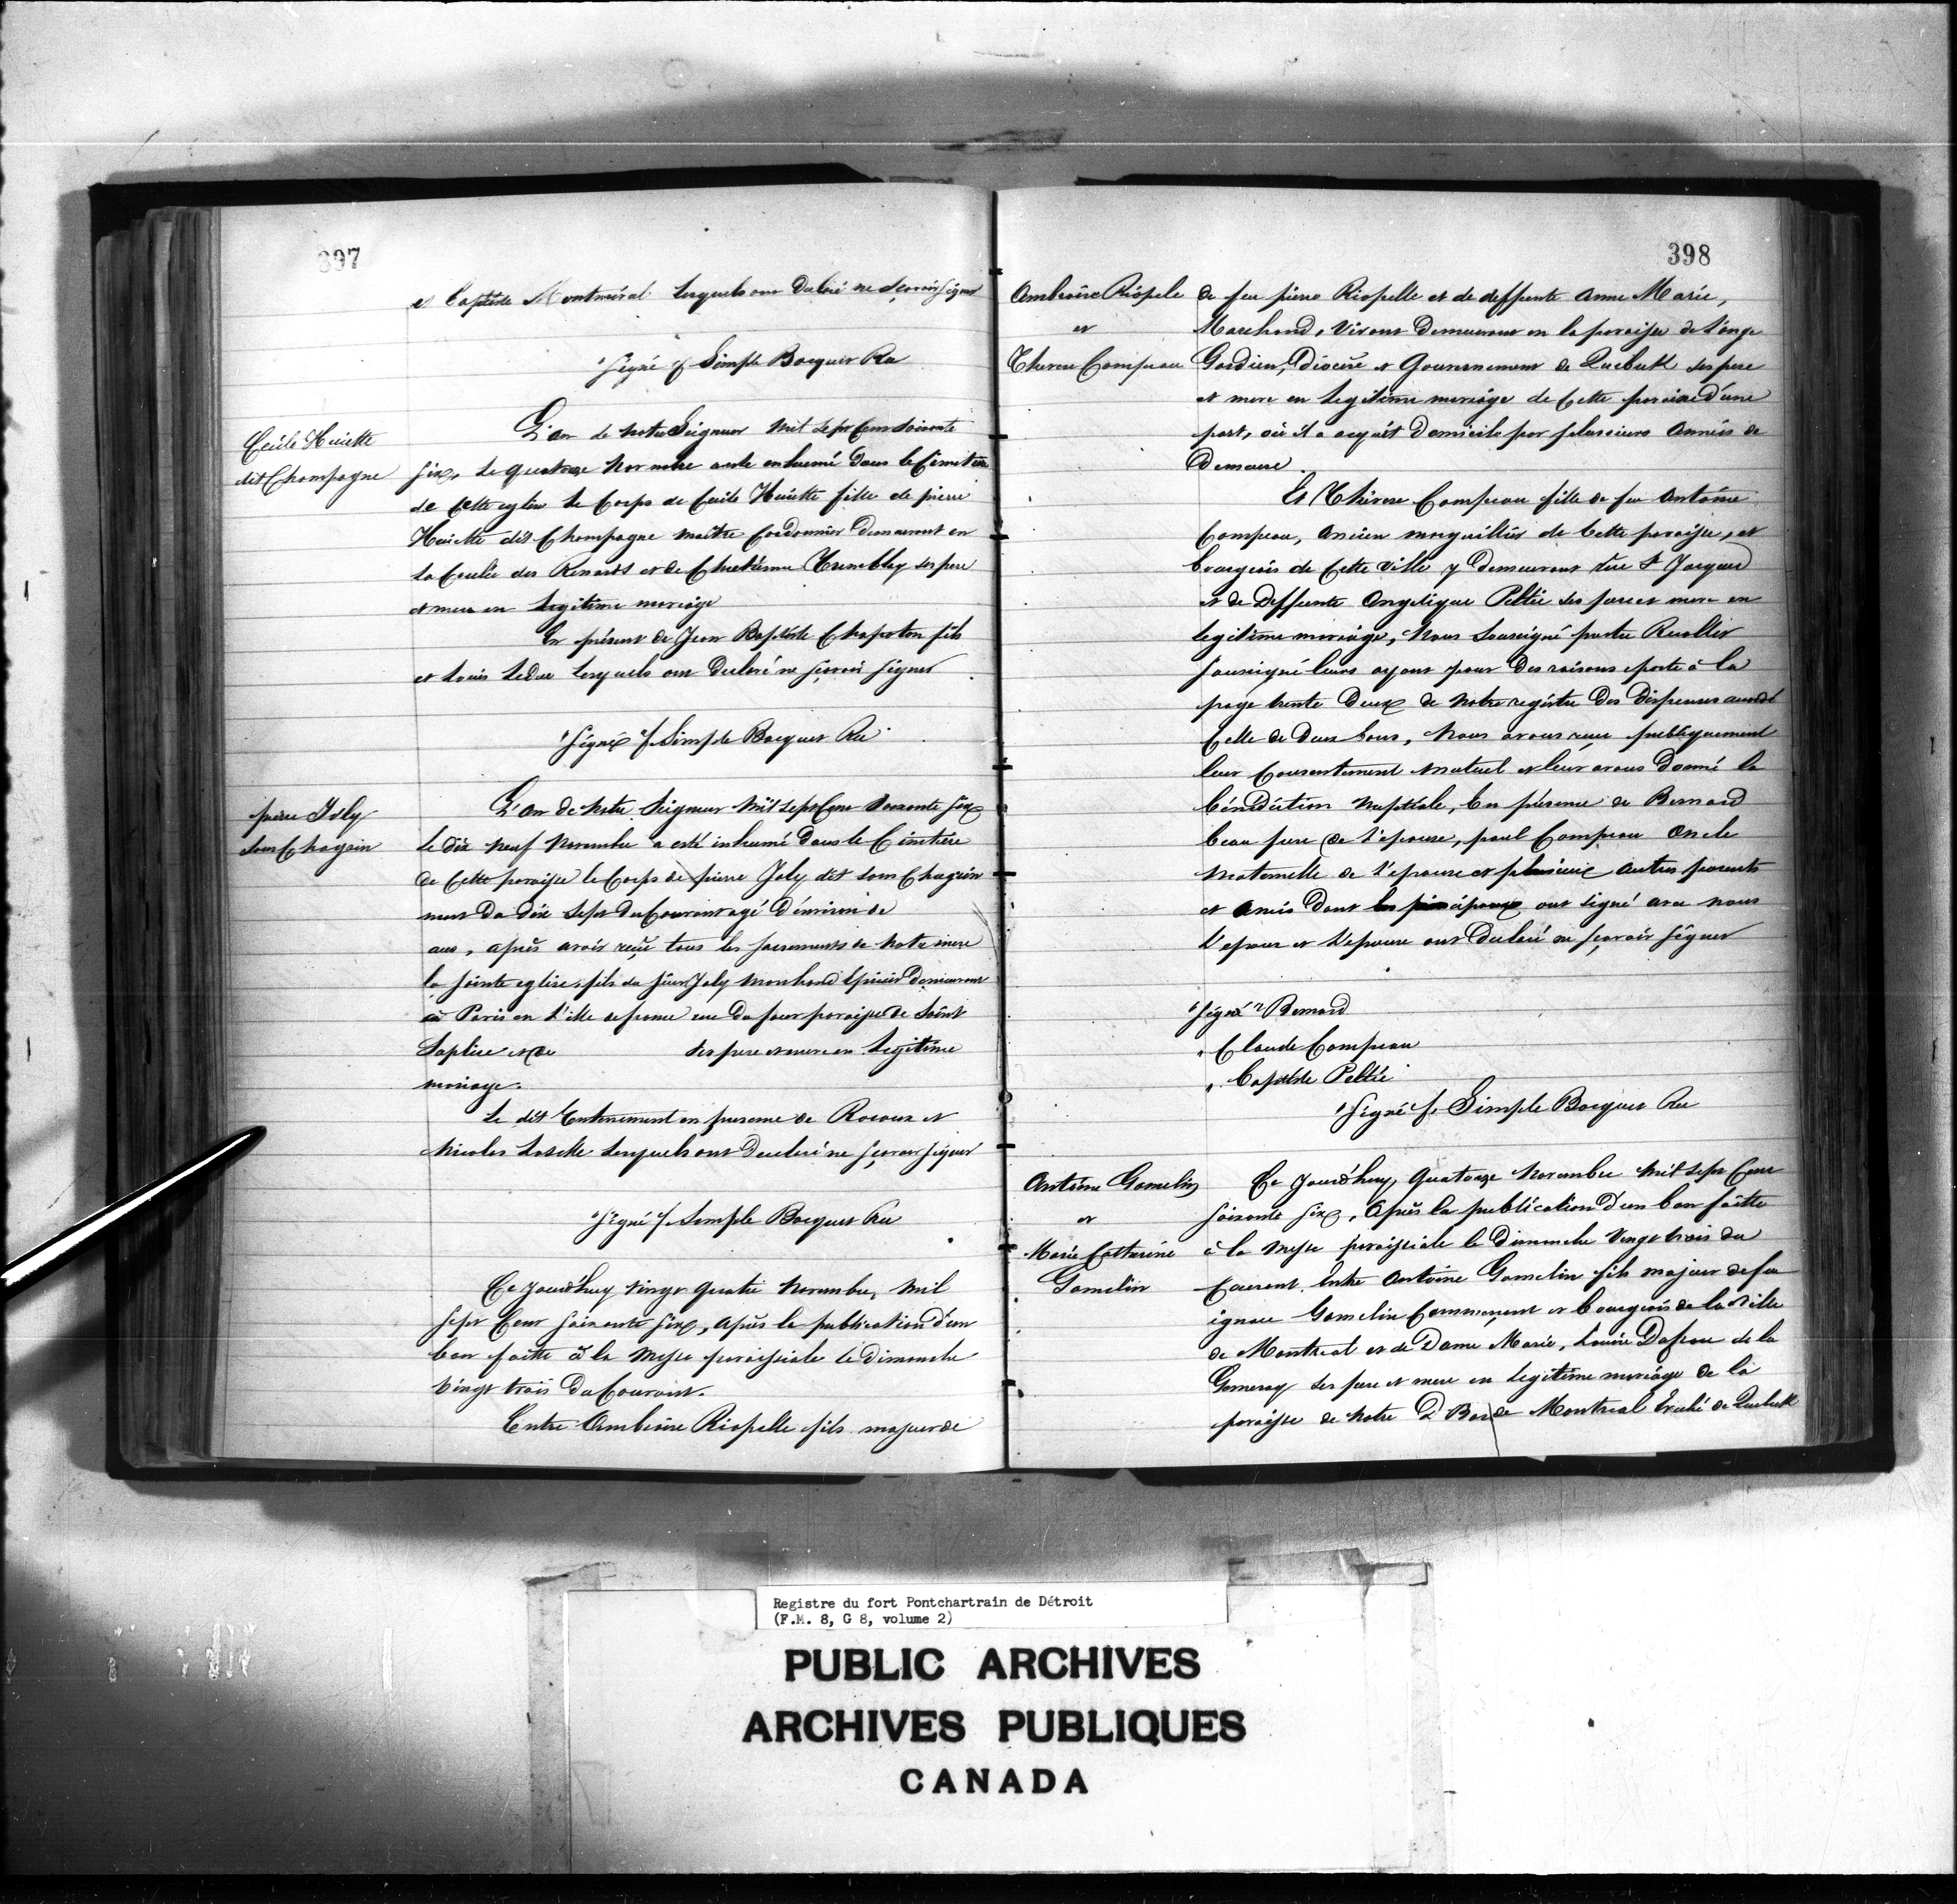 397
et Baptiste Montmiral lesquels ont declaré ne sçavoir signer
"signé f Simple Bocquet Rec
Cecile Huiette
dit Champagne
L'an de notre Seigneur mil sept Cens soixante
six, le quatorze Novembre a este enhumé dans le Cimetiere
de Cette eglise le Corps de Cecile Huiette fille de pierre
Huiette dit Champagne maître Cordonnier demeurant en
la Coulée des Renards et de Tremblay ses pere
et mere en legitime mariage
En présent de Jean Baptiste Chapoton fils
et Louis Leduc lesquels ont declaré ne sçavoir signer
"signé f. Simple Bocquet Rec
pierre Joly
sans Chagrin
L'an de notre Seigneur mil sept Cens soixante six
le dix neuf Novembre a esté inhumé dans le Cimitiere
de Cette paroisse le Corps de pierre Joly dit sans Chagrin
mort du dix sept du Courant agé d'environ de
ans, après avoir reçu tous les sacrements de Notre mere
la sainte eglise, fils du sieur Joly marchand Epicier demeurant
à Paris en L'ille de france rue du four paroisse de Saint
Suplice et de ses pere et mere en legitime
mariage.
Le dit Enterrement en presence de Rocoux et
Nicolas Laselle lesquels ont declaré ne sçavoir signer
"signé f. Simple Bocquet Rec
Ce jourd'huy vingt quatre Novembre, mil
sept Cens soixante six, après la publication d'un
ban faitte à la Messe paroissiale le dimanche
vingt trois du Courant.
Entre Ambroise Riopelle fils majeur de
398
Ambroise Riopele
et
Therese Campeau
de feu pierre Riopelle et de deffunte Anne Marie,
Marchand, vivant demeurant en la paroisse de L'ange
Gardien, Diocese et Gouvernement de Quebeck ses pere
et mere en legitime mariage de Cette paroisse d'une
part, où il a acquit domicile par plusieurs Années de
demeure.
Et Thérese Campeau fille de feu Antoine
Campeau, Ancien marguillier de Cette paroisse, et
bourgeois de Cette ville y demeurant rue St Jacques
et de Deffunte Angelique Peltié ses pere et mere en
legitime mariage, Nous Soussigné prêtre Recollet
soussigné leurs ayant pour des raisons porté à la
page trente deux de notre registre des dispenses accordé
Celle de deux bans, Nous avons reçu publiquement
leur Consentement mutuel et leur avons donné la
bénédiction nuptiale, En présence de Bernard
beau pere de l'epouse, paul Campeau Oncle
maternelle de l'epouse et plusieurs autres parents
et Amis dont les principaux ont signé avec nous
l'epoux et l'epouse ont declaré ne sçavoir signer
"signé" Bernard
" Claude Campeau
" Baptiste Peltié
"signé f. Simple Bocquet Rec
Antoine Gamelin
et
Marie Catherine
Gamelin
Ce jourd'huy, quatorze Novembre mil sept Cens
soixante six, Après la publication d'un ban faitte
à la Messe paroissiale le dimanche Vingt trois du
Courent. Entre Antoine Gamelin fils majeur de feu
ignace Gamelin Commerçant et bourgeois de la ville
de Montreal et de Dame Marie, Louise Dufrou de la
Gemeray ses pere et mere en legitime mariage de la
paroisse de Notre D de Montreal Eveché de Quebeck
Registre du fort Pontchartrain de Détroit
(F.M. 8, G 8, volume 2)
PUBLIC ARCHIVES
ARCHIVES PUBLIQUES
CANADA